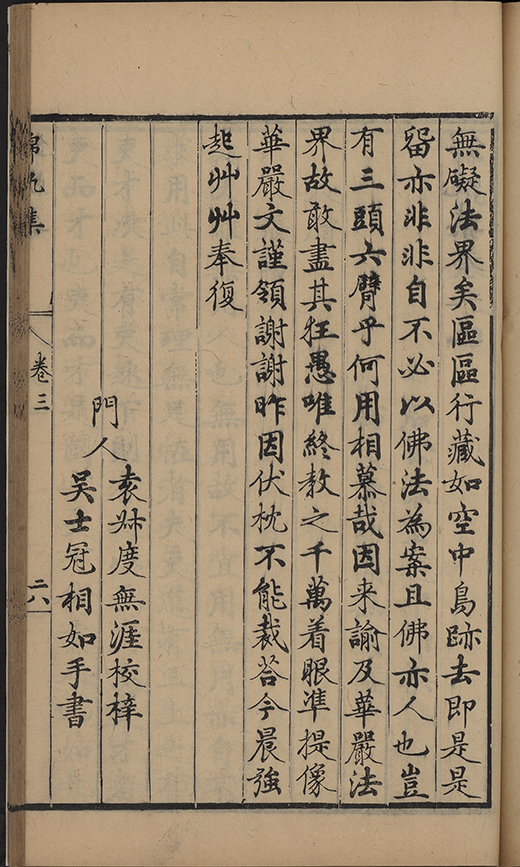 無礙法界矣區區行藏如空中鳥跡去即是是
留亦非非自不必以佛法為案且佛亦人也豈
有三頭六臂乎何用相慕哉因来諭及華嚴法
界故敢盡其狂愚唯終教之千萬着眼準提像
華嚴文謹領謝謝昨因伏枕不能裁荅今晨強
起艸艸奉復
門人
袁尗度無涯校梓
吳士冠相如手書
錦帆集
卷三
二六